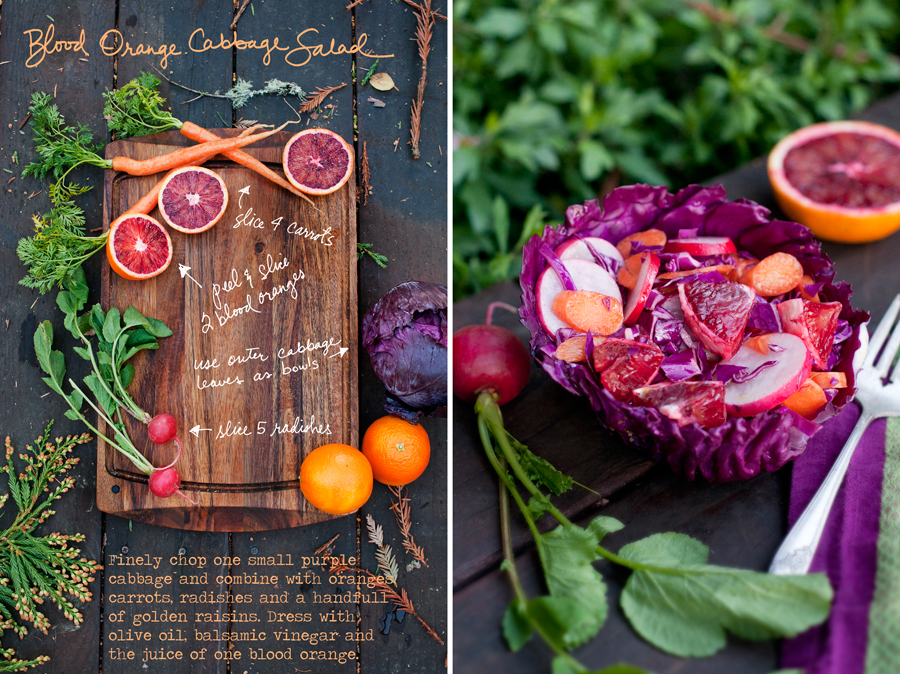 Blood Orange Cabbage Salad
slice 4 carrots
peel & slice
2 blood oranges
use outer cabbage
leaves as bowls
slice 5 radishes
Finely chop one small purple
cabbage and combine with oranges
carrots, radishes and a handfull
of golden raisins. Dress with
olive oil, balsamic vinegar and
the juice of one blood orange.